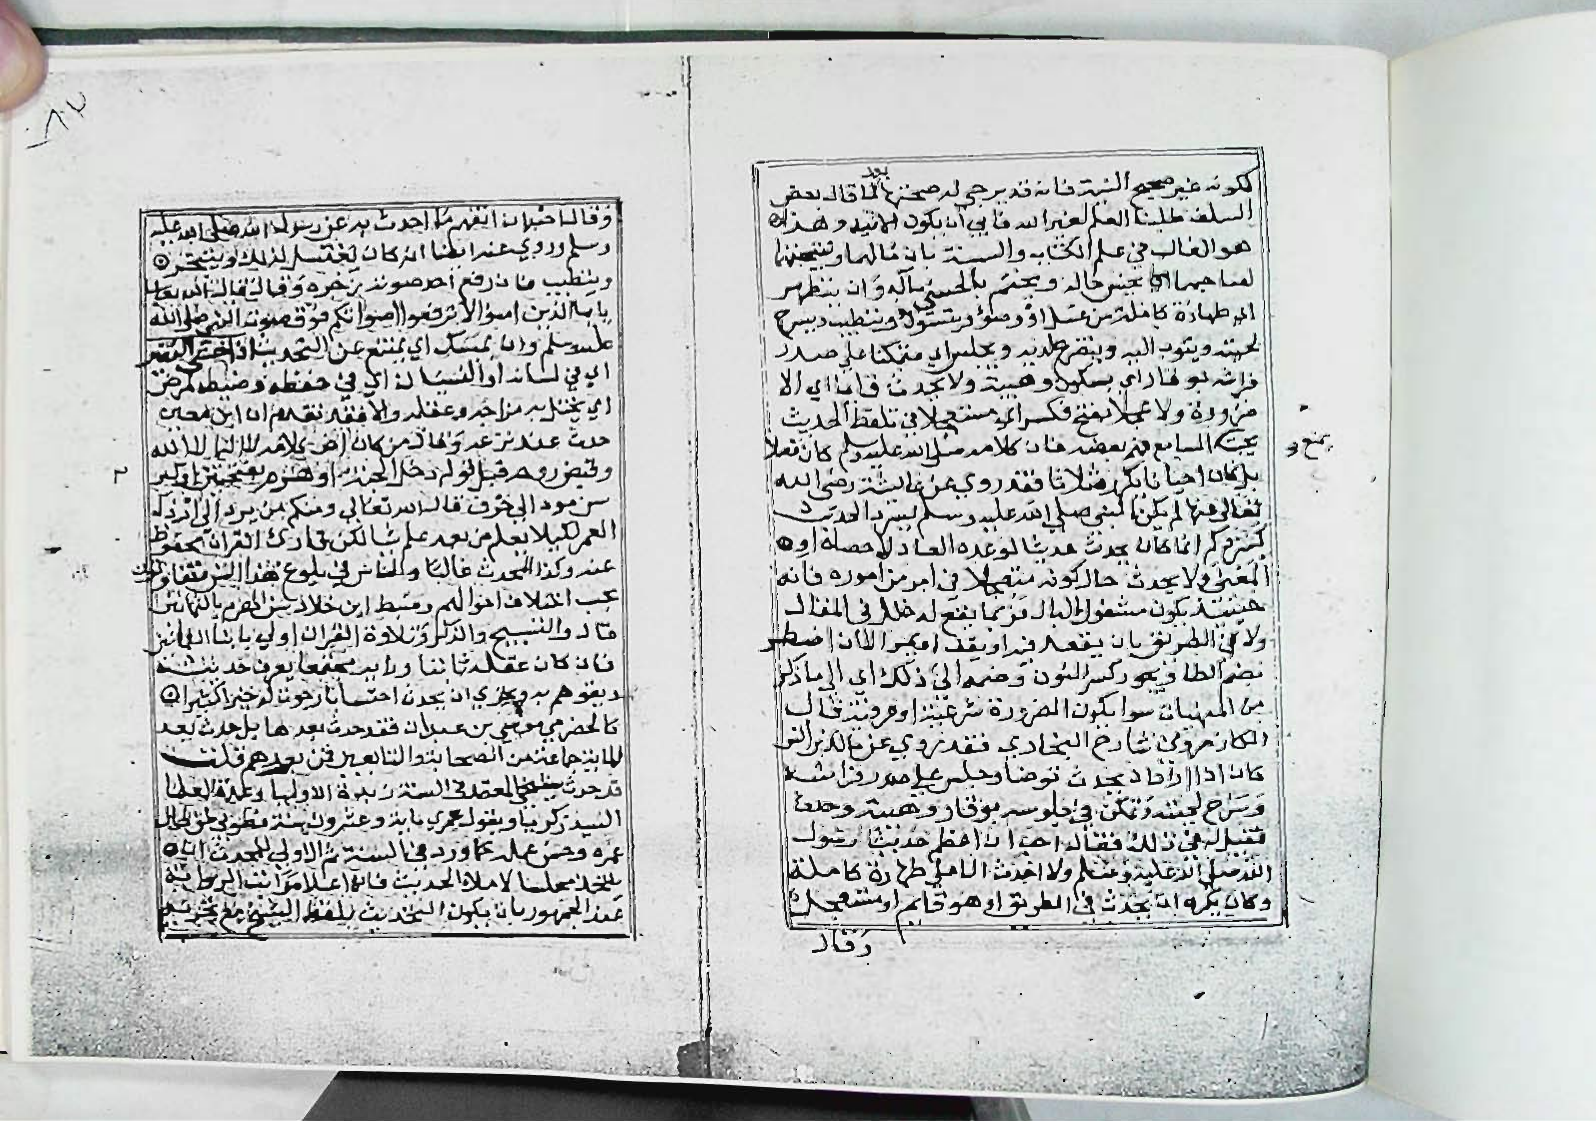 لكونه غير صحيح النية فانه قد يرجي له صحتها بعد لما قال بعض
السلف طلبنا العلم لغير الله فابي ان يكون الا لله وهذا
هو الغالب في علم الكتاب والسنة بان مالهما ونتيجتهما
لصاحبهما ان يحسن حاله ويختم بالحسني مآله وان يتطهر
اي طهارة كاملة من غسل او وضوء ويتسوك ويتطيب ويسرح
لحيته ويتوب اليه ويتضرع لديه ويجلس اي متمكنا علي صدر
فراشه بوقار اي بسكون وهيبة ولا يحدث قائما اي الا
ضرورة ولا عجلا بفتح فكسر اي مستعجلا في تلفظ الحديث
يمنع
السامع فهم بعضه فان كلامه صلي الله عليه وسلم كان فصلا
بل كان احيانا يكرر ثلاثا فقد روي عن عائشة رضي الله
تعالي عنها لم يكن النبي صلي الله عليه وسلم يسرد الحديث
كسردكم انما كان يحدث حديثا لو عده العاد لاحصاه او
المعني ولا يحدث حال كونه متعجلا في امر من اموره فانه
حينئذ يكون مشغول البال فربما يقع له خلل في المقال
ولا في الطريق بان يقعد فيه او يقف او يمر الا ان اضطر
بضم الطا ويجوز كسر النون وضمه الي ذلك اي الي ما ذكر
من المنهيات سوا يكون الضرورة شرعية او عرفية قال
الكازروني شارح البخاري فقد روي عن مالك بن انس
كان اذا اراد ان يحدث توضا وجلس علي صدر فراشه
وسرح لحيته وتمكن في جلوسه بوقار وهيبة وحدث
فقيل له في ذلك فقال احب ان اعظم حديث رسول
الله صلي الله عليه وسلم ولا احدث الا علي طهارة كاملة
وكان يكره ان يحدث في الطريق او هو قائم او مستعجل
وقال
وقال احب ان اتفهم ما احدث به عن رسول الله صلي الله عليه
وسلم وروي عنه ايضا انه كان يغتسل لذلك ويتبخر
ويتطيب فان رفع احد صوته زجره وقال قال الله تعالي
يا ايها الذين امنوا لا ترفعوا اصواتكم فوق صوت النبي صلي الله
عليه وسلم وان يمسك اي يمتنع عن التحديث اذا خشي التغير
اي في لسانه او النسيان اي في حفظه وضبطه لمرض
اي يختل به مزاجه وعقله والا فقد تقدم ان ابن معين
حدث عند نزعه وقال من كان اخر كلامه لا اله الا الله
وقبض روحه قبل قوله دخل الجنة او هرم بفتحتين اي كبر
سن مود الي خرف قال الله تعالي ومنكم من يرد الي ارذل
العمر لكيلا يعلم من بعد علم شيا لكن قارئ القران محفوظ
عنه وكذا المحدث غالبا والناس في بلوغ هذا السن متفاوتون
بحسب اختلاف احوالهم وضبط ابن خلاد سن الهرم بالثمانين
قال والتسبيح والذكر وتلاوة القران اولي بابنا الثمانين
فان كان عقله ثابتا ورايه مجتمعا يعرف حديثه
ويقوم به وتحري ان يحدث احتسابا رجوت له خيرا كثيرا
كالحضرمي موسي بن عبدان فقد حدث بعدها بل حدث بعد
الماية جماعة من الصحابة والتابعين فمن بعدهم قلت
قد حدث شيخي المعتمد في السنة زبدة الاوليا وعمدة العلما
السيد زكريا ويقول عمري ماية وعشرون سنة فطوبي لمن طال
عمره وحسن عمله كما ورد في السنة ثم الاولي للمحدث ان
يتخذ مجلسا لاملاء الحديث فانه اعلا مراتب الرواية
عند الجمهور بان يكون التحديث بلفظ الشيخ مع تحريه